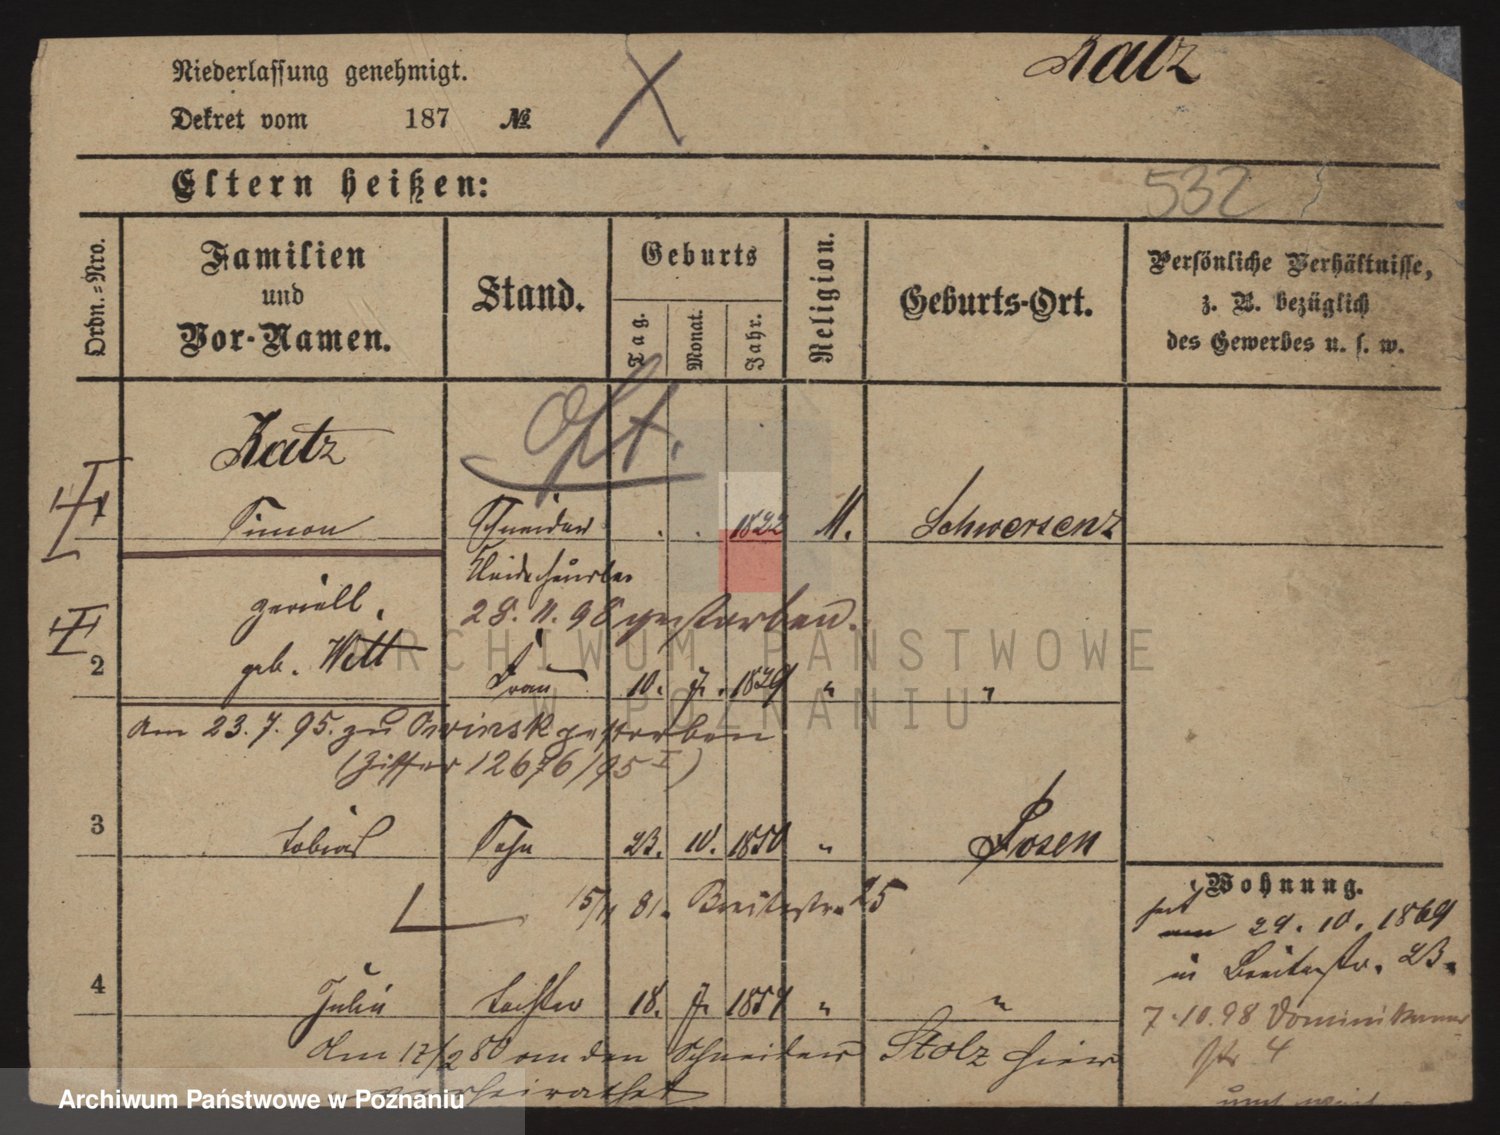 Niederlassung genehmigt.
Katz
Dekret vom 187 №
Eltern heißen:
532
Ordn.=Nro.
Familien
und
Vor-Namen.
Stand.
Geburts
Tag.
Monat.
Jahr.
Religion.
Geburts-Ort.
Persönliche Verhältnisse,
z. B. bezüglich
des Gewerbes u. s. w.
Katz
Simon Schneider . . 1822 M. Schwersenz
28. 11. 98 gestorben.
geb. Witt
2 Frau 10. 7. 1829 " "
Am 23. 7. 95. zu Owinsk gestorben
(Ziffer 12676/95 I)
3 Tobias Sohn 23. 10. 1850 " Posen
15/11 81. Breitestr. 25
Wohnung.
seit
am 29. 10. 1869
in Breitestr. 23.
4 Julie Tochter 18. 7. 1854 " "
7.10.98 Dominikaner
Str 4
Am 17/2 80 an den Schneider Stolz hier
verheirathet
ARCHIWUM PAŃSTWOWE
W POZNANIU
Archiwum Państwowe w Poznaniu